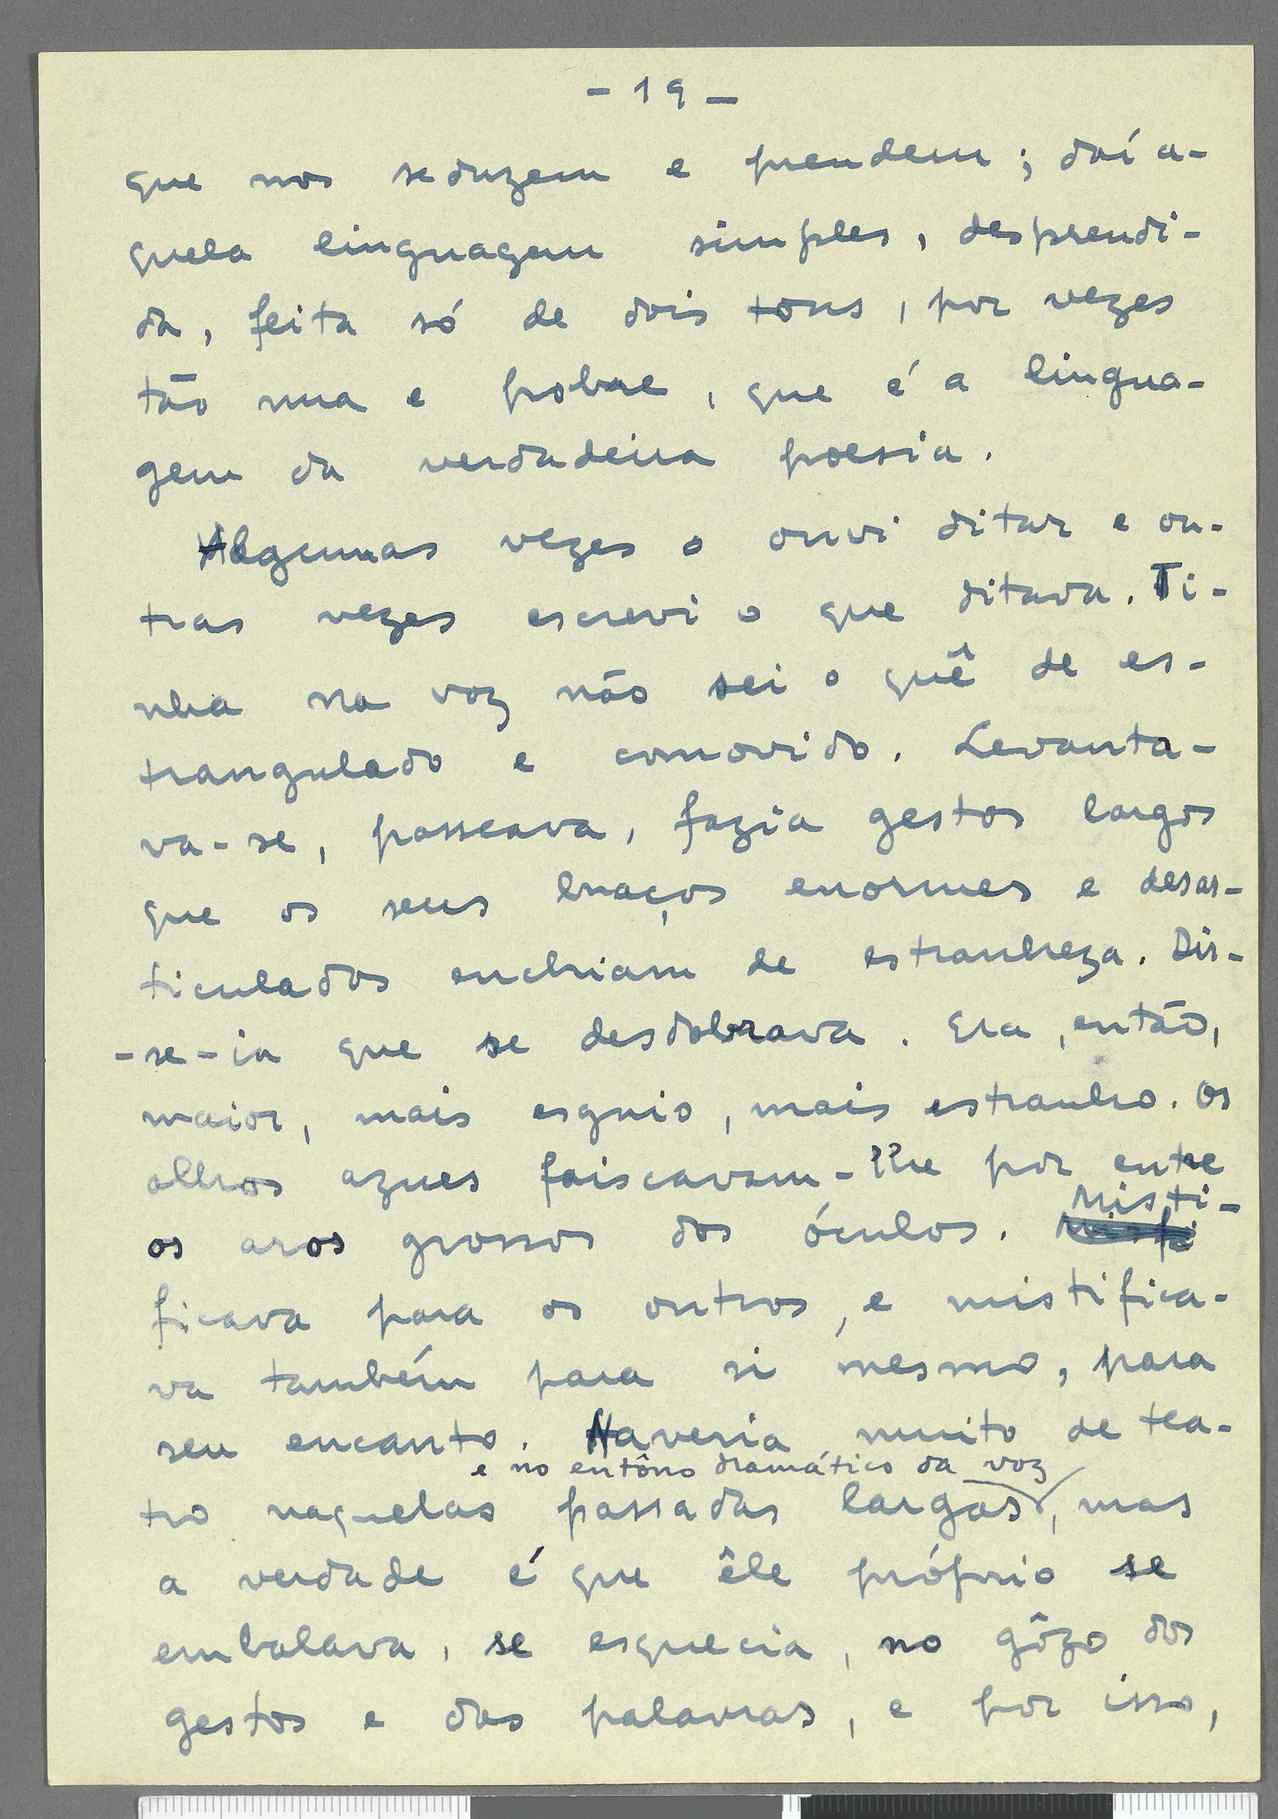 - 19 -
que nos seduzem e prendem; daí a-
quela linguagem simples, desprendi-
da, feita só de dois tons, por vezes
tão nua e pobre, que é a lingua-
gem da verdadeira poesia.
Algumas vezes o ouvi ditar e ou-
tras vezes escrevi o que ditava. Ti-
nha na voz não sei o quê de es-
trangulado e comovido. Levanta-
va-se, passeava, fazia gestos largos
que os seus braços enormes e desar-
ticulados enchiam de estranheza. Dir-
-se-ia que se desdobrava. Era, então,
maior, mais esguio, mais estranho. Os
olhos azues faiscavam-lhe por entre
Misti-
os aros grossos dos óculos.
ficava para os outros, e mistifica-
va também para si mesmo, para
seu encanto. Haveria muito de tea-
e no entôno dramático da voz
tro naquelas passadas largas, mas
a verdade é que êle próprio se
embalava, se esquecia, no gôzo dos
gestos e das palavras, e por isso,